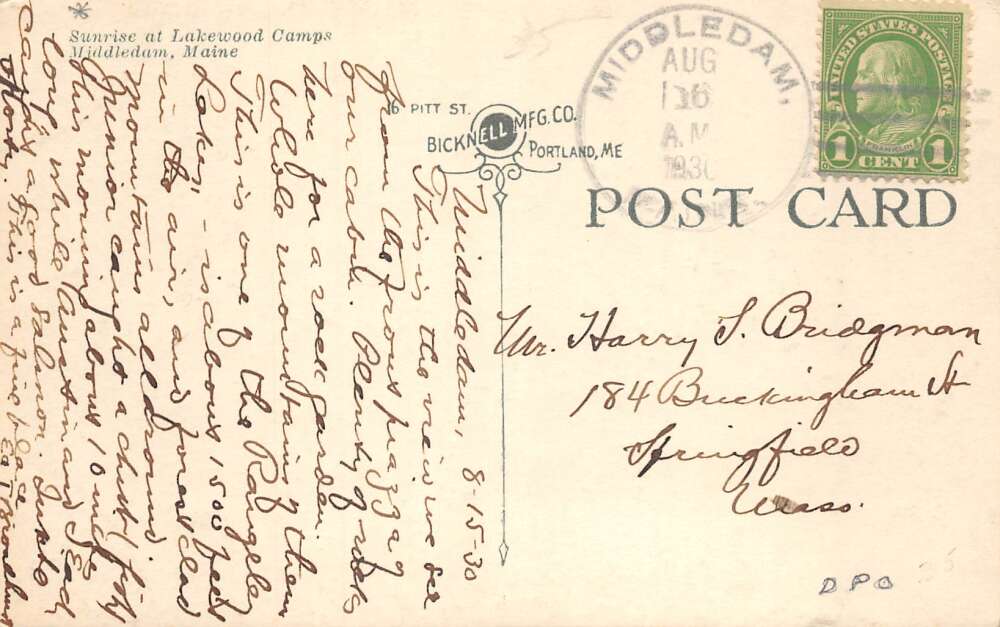 Sunrise at Lakewood Camps
Middledam, Maine
16 PITT ST.
BICKNELL MFG. CO.
PORTLAND, ME
MIDDLEDAM,
AUG
16
A.M.
1930
UNITED STATES POSTAGE
FRANKLIN
1 CENT 1
POST CARD
Mr. Harry S. Bridgman
184 Buckingham St
Springfield
Mass.
DPO
Middledam, 8-15-30
This is the view we see
from the front piazza of
our cabin. Plenty of rocks
here for a rock garden.
Whole mountains of them
This is one of the Rangeley
Lakes, - is about 1500 feet
in the air, and forest clad
mountains all around
Junior caught a chub (fish)
this morning about 10
long, while Austin and I each
caught a good salmon.
This is a fine place